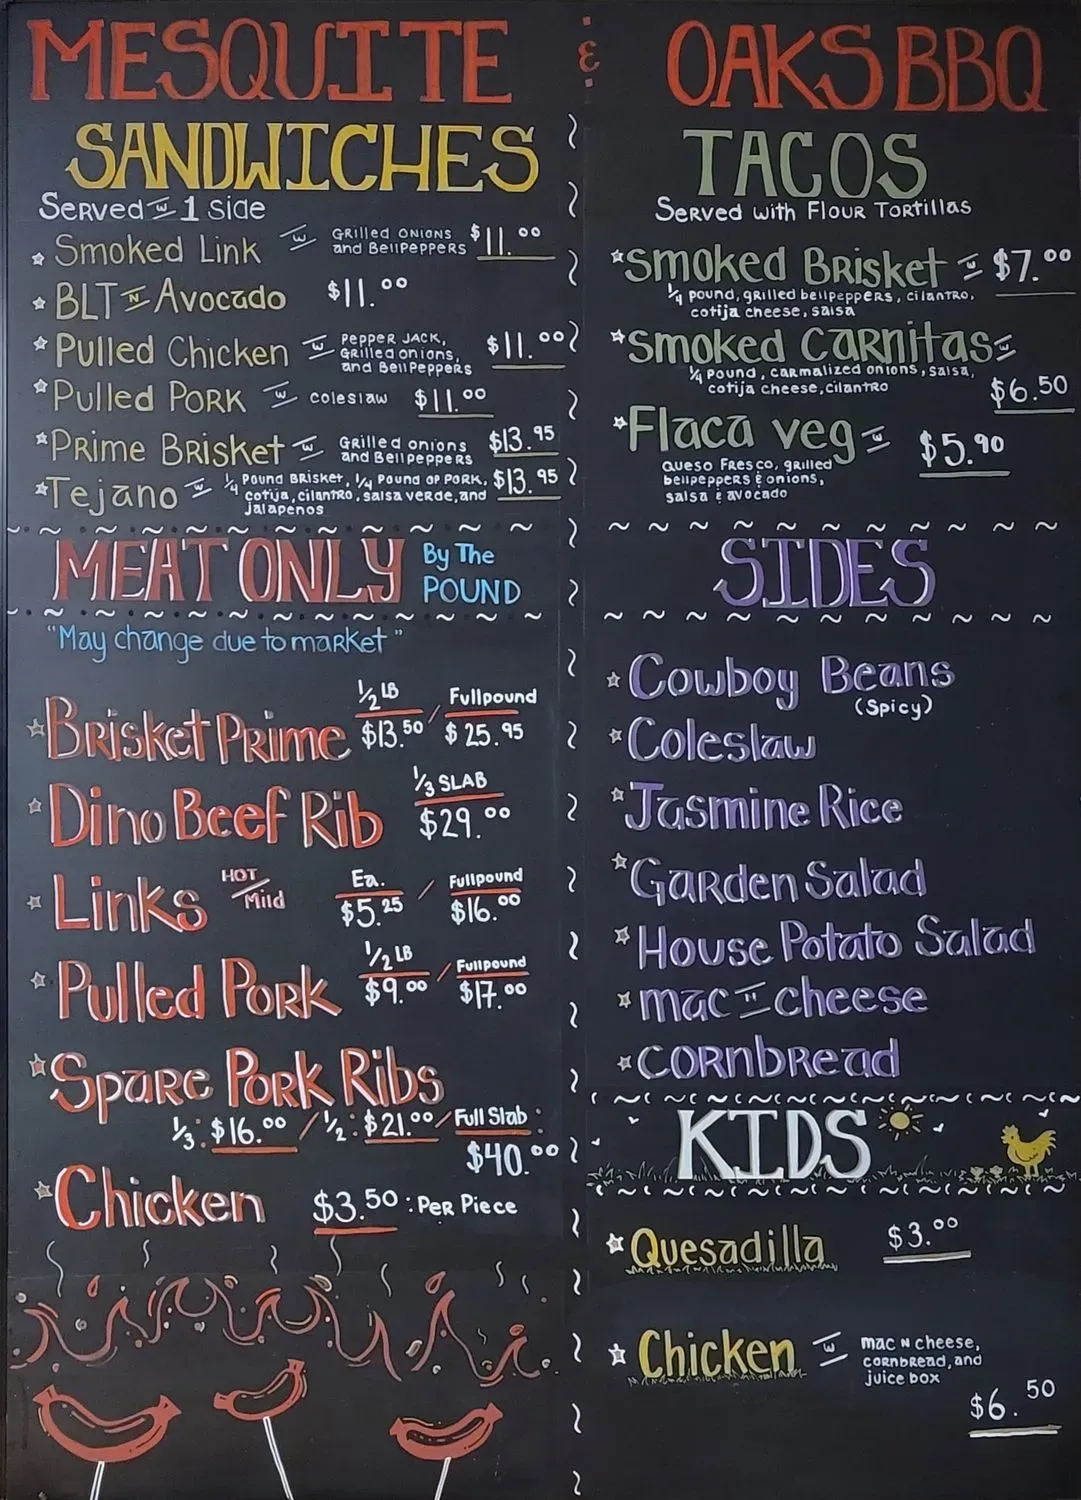 MESQUITE & OAKS BBQ
SANDWICHES
Served w 1 Side
Smoked Link w GRilled ONIONS and BellPeppers $11.00
BLT N Avocado $11.00
Pulled Chicken w PEPPER JACK, GRilled onions, and BellPeppers $11.00
Pulled PORK w coleslaw $11.00
PRime BRisket w GRilled onions and BellPeppers $13.95
Tejano w 1/4 POUND BRISKET, 1/4 POUND OF PORK, cotija, cilantro, salsa verde, and jalapenos $13.95
MEAT ONLY By The POUND
"May change due to maRket"
BRisket PRime 1/2 LB $13.50 / Fullpound $25.95
Dino Beef Rib 1/3 SLAB $29.00
Links HOT / Mild Ea. $5.25 / Fullpound $16.00
Pulled PORK 1/2 LB $9.00 / Fullpound $17.00
SpaRe PORK Ribs
1/3: $16.00 / 1/2: $21.00 / Full Slab: $40.00
Chicken $3.50: PeR Piece
TACOS
Served with Flour Tortillas
Smoked BRisket w $7.00
1/4 pound, grilled bellpeppers, cilantro,
cotija cheese, salsa
Smoked CaRnitas w
1/4 Pound, carmalized onions, salsa,
cotija cheese, cilantro
$6.50
Flaca veg w $5.90
QUESO FRESCO, grilled
bellpeppers & onions,
salsa & avocado
SIDES
Cowboy Beans
(Spicy)
Coleslaw
Jasmine Rice
GaRden Salad
House Potato Salad
mac N cheese
CORnbRead
KIDS
Quesadilla $3.00
Chicken w mac N cheese,
coRnbRead, and
juice box
$6.50